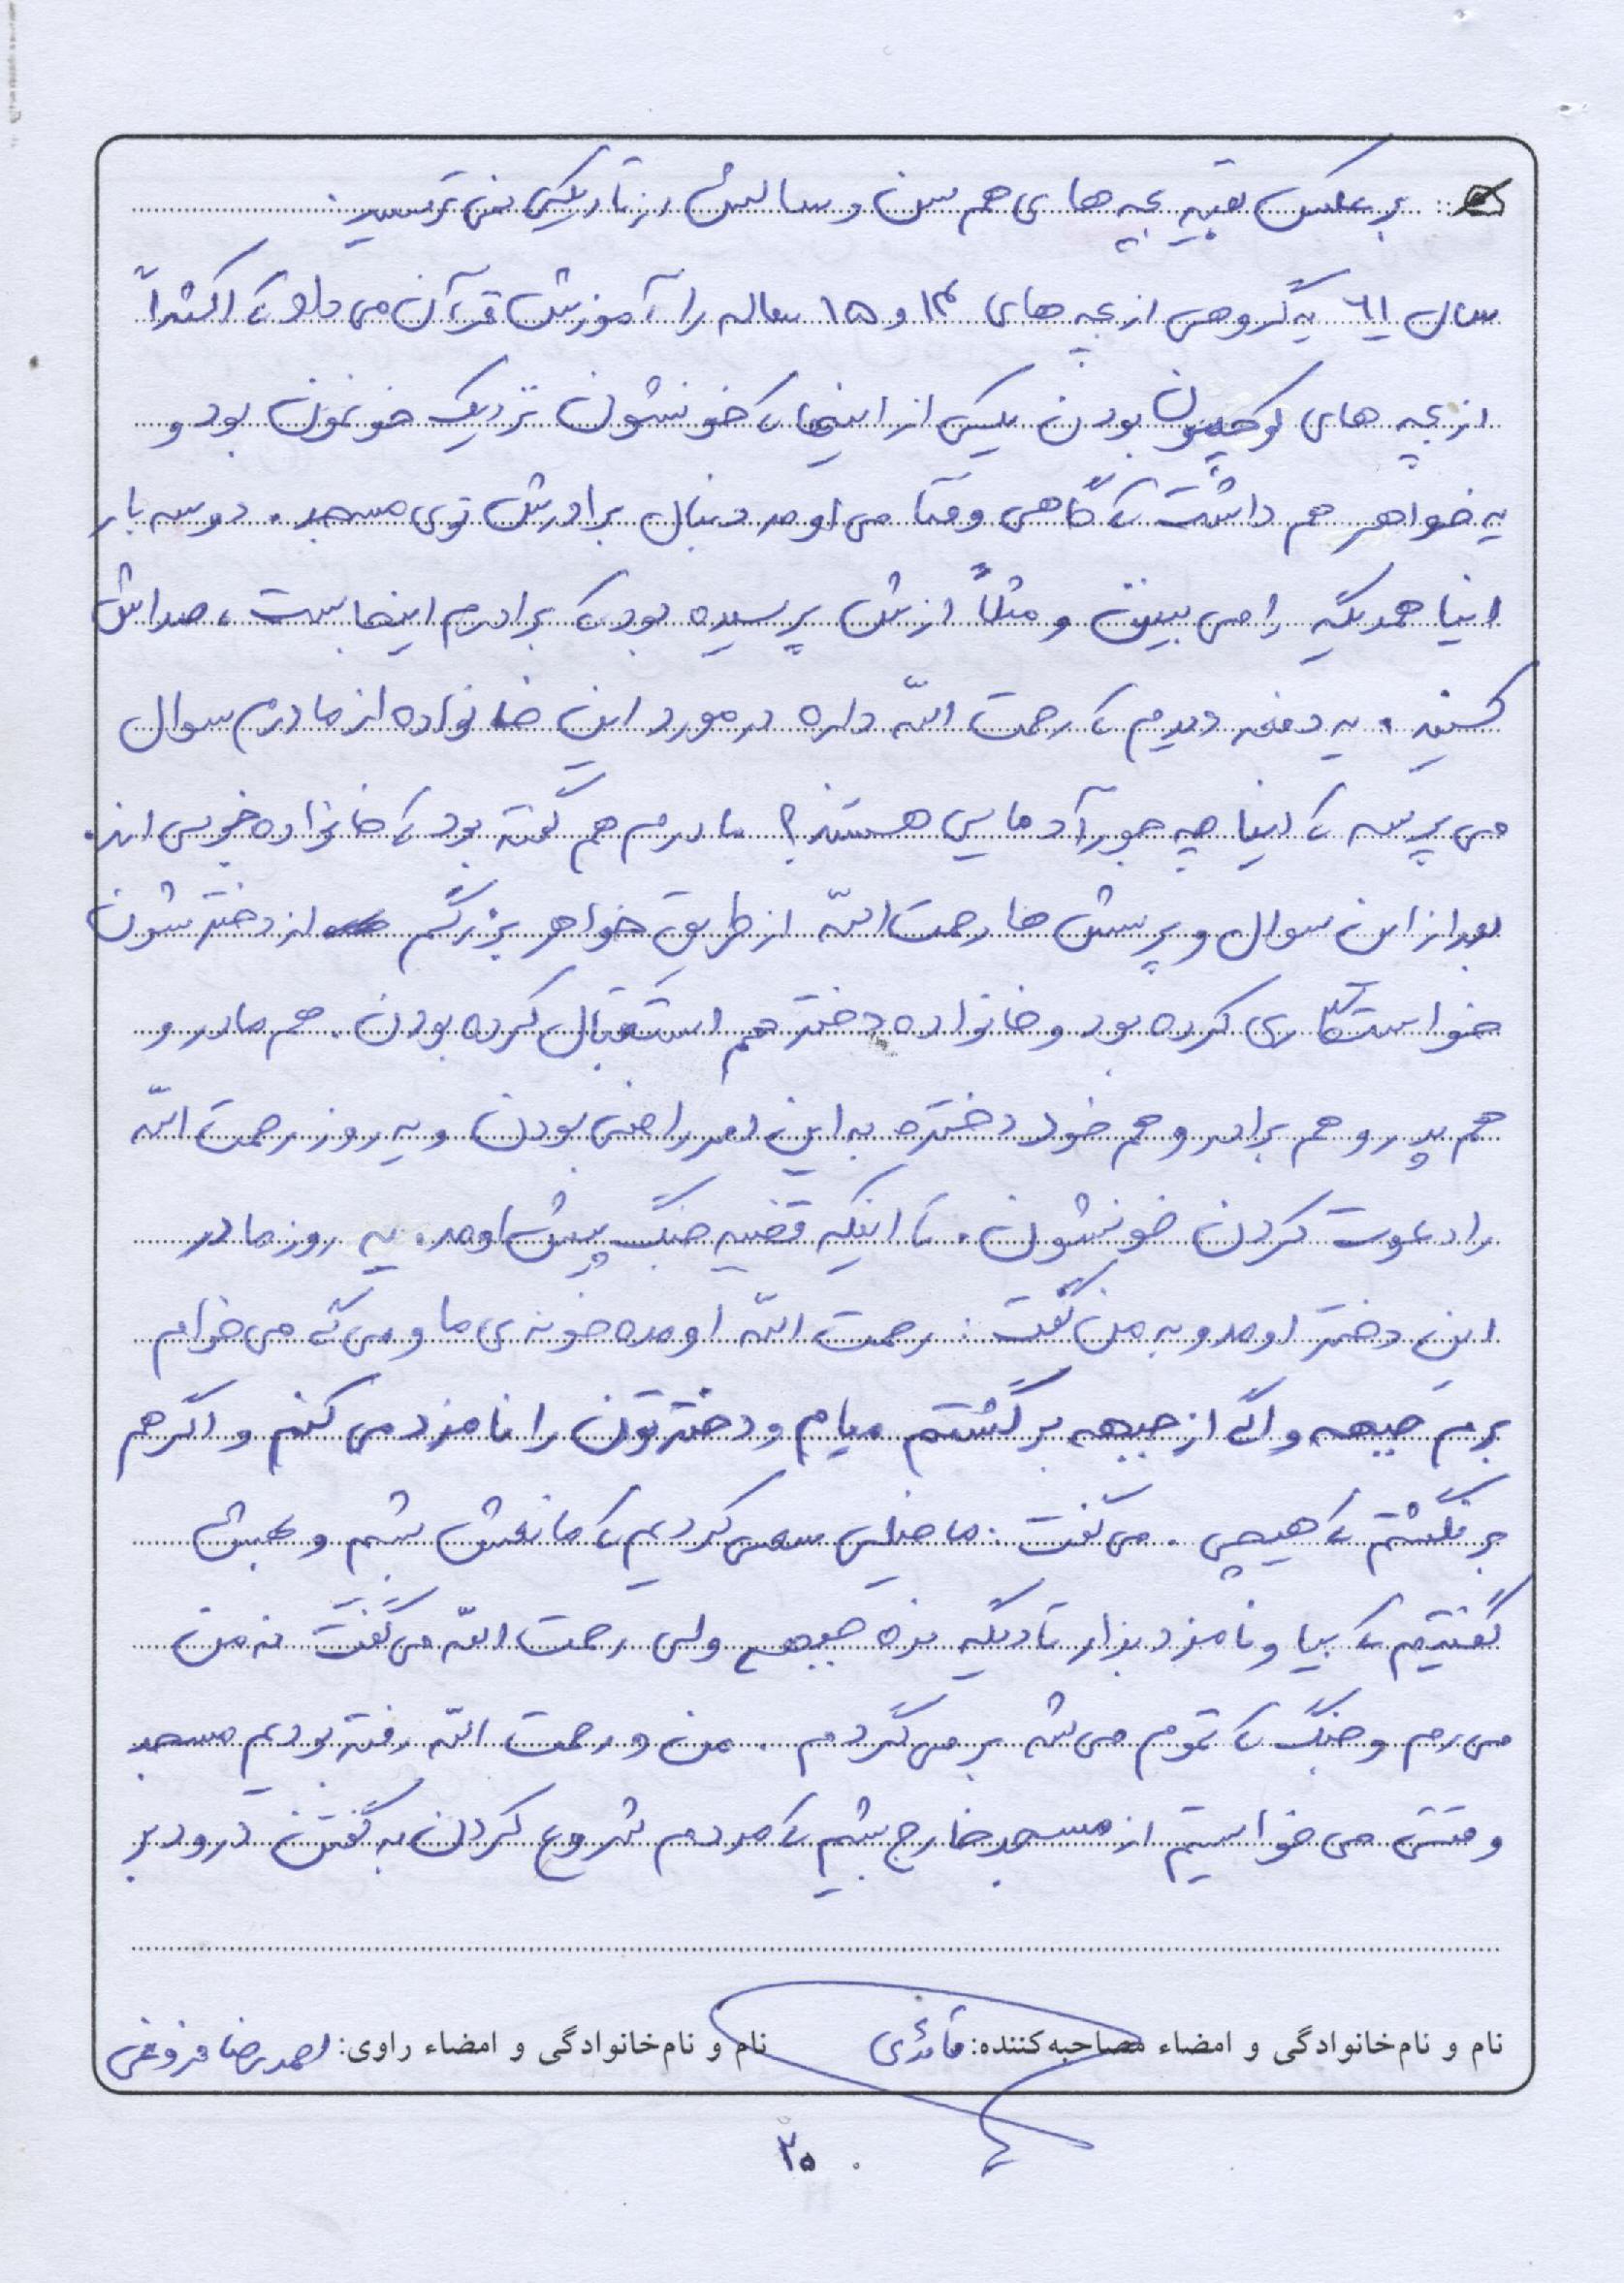 برعکس بقیه بچه های هم سن و سالش از تاریکی نمی ترسید.
سال ٦١ یه گروهی از بچه های ۱۴ و ۱۵ ساله را آموزش قرآن می داد که اکثراً
از بچه های کوچمون بودن یکی از اینها که خونشون نزدیک خونمون بود و
یه خواهر هم داشت که گاهی وقتا می اومد دنبال برادرش توی مسجد. دو سه بار
اینا همدیگه را می بینن و مثلاً ازش پرسیده بود که برادرم اینجاست، صداش
کنید. یه دفعه دیدم که رحمت الله داره در مورد این خانواده از مادرم سوال
می پرسه که اینا چه جور آدمایی هستند؟ مادرم هم گفته بود که خانواده خوبی اند.
بعد از این سوال و پرسش ها رحمت الله از طریق خواهر بزرگم از دخترشون
خواستگاری کرده بود و خانواده دختر هم استقبال کرده بودن. هم مادر و
هم پدر و هم برادر و هم خود دختره به این امر راضی بودن و یه روز رحمت الله
را دعوت کردن خونشون. تا اینکه قضیه جنگ پیش اومد. یه روز مادر
این دختر اومد و به من گفت: رحمت الله اومده خونه ی ما و می گه می خوام
برم جبهه و اگه از جبهه برگشتم میام و دخترتون را نامزد می کنم و اگر هم
برنگشتم که هیچی. می گفت: ما خیلی سعی کردیم که مانعش بشیم و بهش
گفتیم که بیا و نامزد بذار تا دیگه نره جبهه ولی رحمت الله می گفت نه من
می رم و جنگ که تموم می شه برمی گردم. من و رحمت الله رفته بودیم مسجد
وقتی می خواستیم از مسجد خارج بشیم که مردم شروع کردن به گفتن درود بر
نام و نام‌خانوادگی و امضاء مصاحبه‌کننده: قائدی نام و نام‌خانوادگی و امضاء راوی: احمدرضا فروغی
۲۵